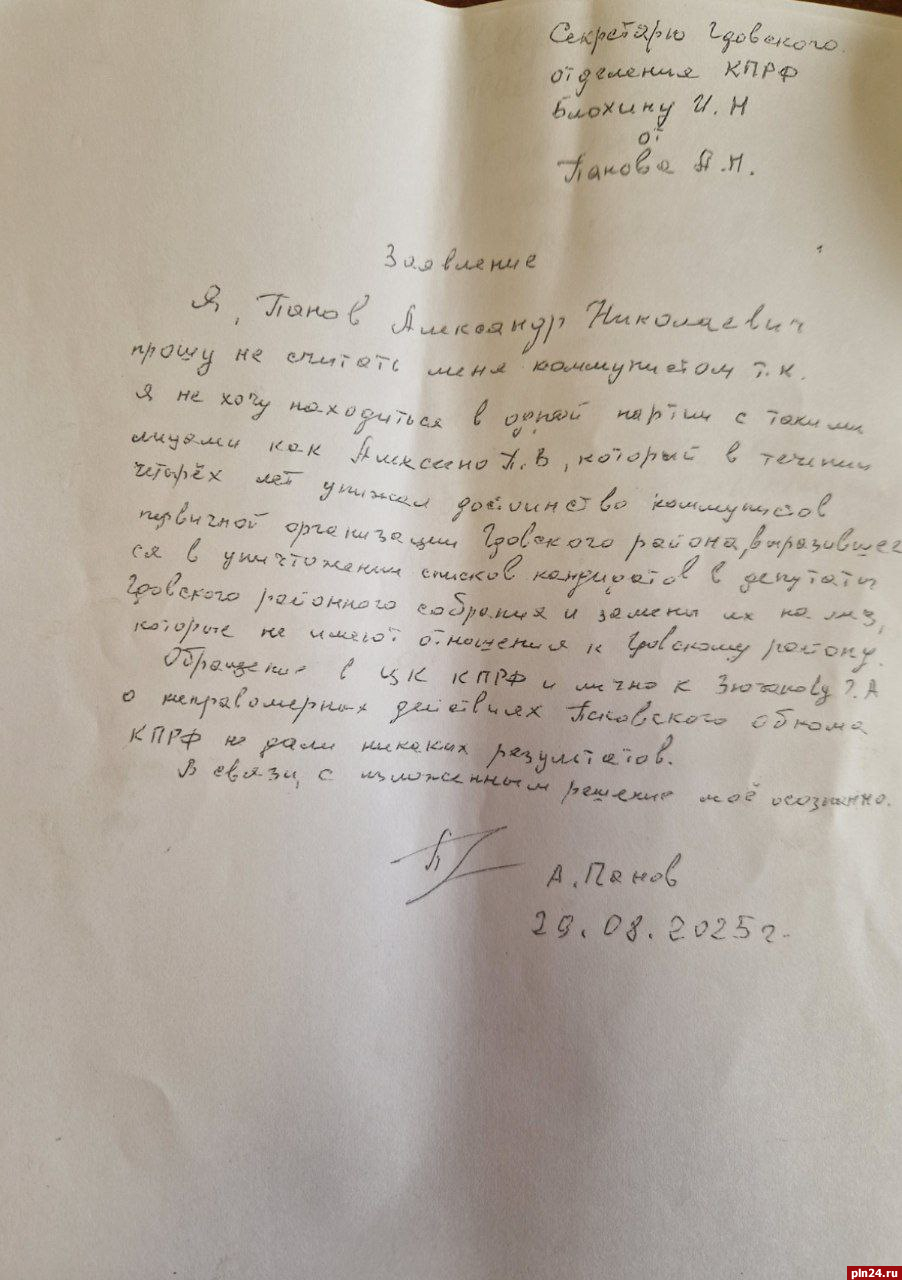 Секретарю Гдовского
отделения КПРФ
Блохину И. Н
от
Панова А.Н.
Заявление
Я, Панов Александр Николаевич
прошу не считать меня коммунистом т.к.
я не хочу находиться в одной партии с такими
лицами как П.В, который в течении
четырёх лет унижал достоинство коммунистов
первичной организации Гдовского района, выразившее
ся в уничтожении списков кандидатов в депутаты
Гдовского районного собрания и замены их на лиц,
которые не имеют отношения к Гдовскому району.
Обращение в ЦК КПРФ и лично к Зюганову Г.А
о неправомерных действиях Псковского обкома
КПРФ не дали никаких результатов.
В связи, с изложенным решение моё осознанно.
А. Панов
29.08.2025г.
pln24.ru